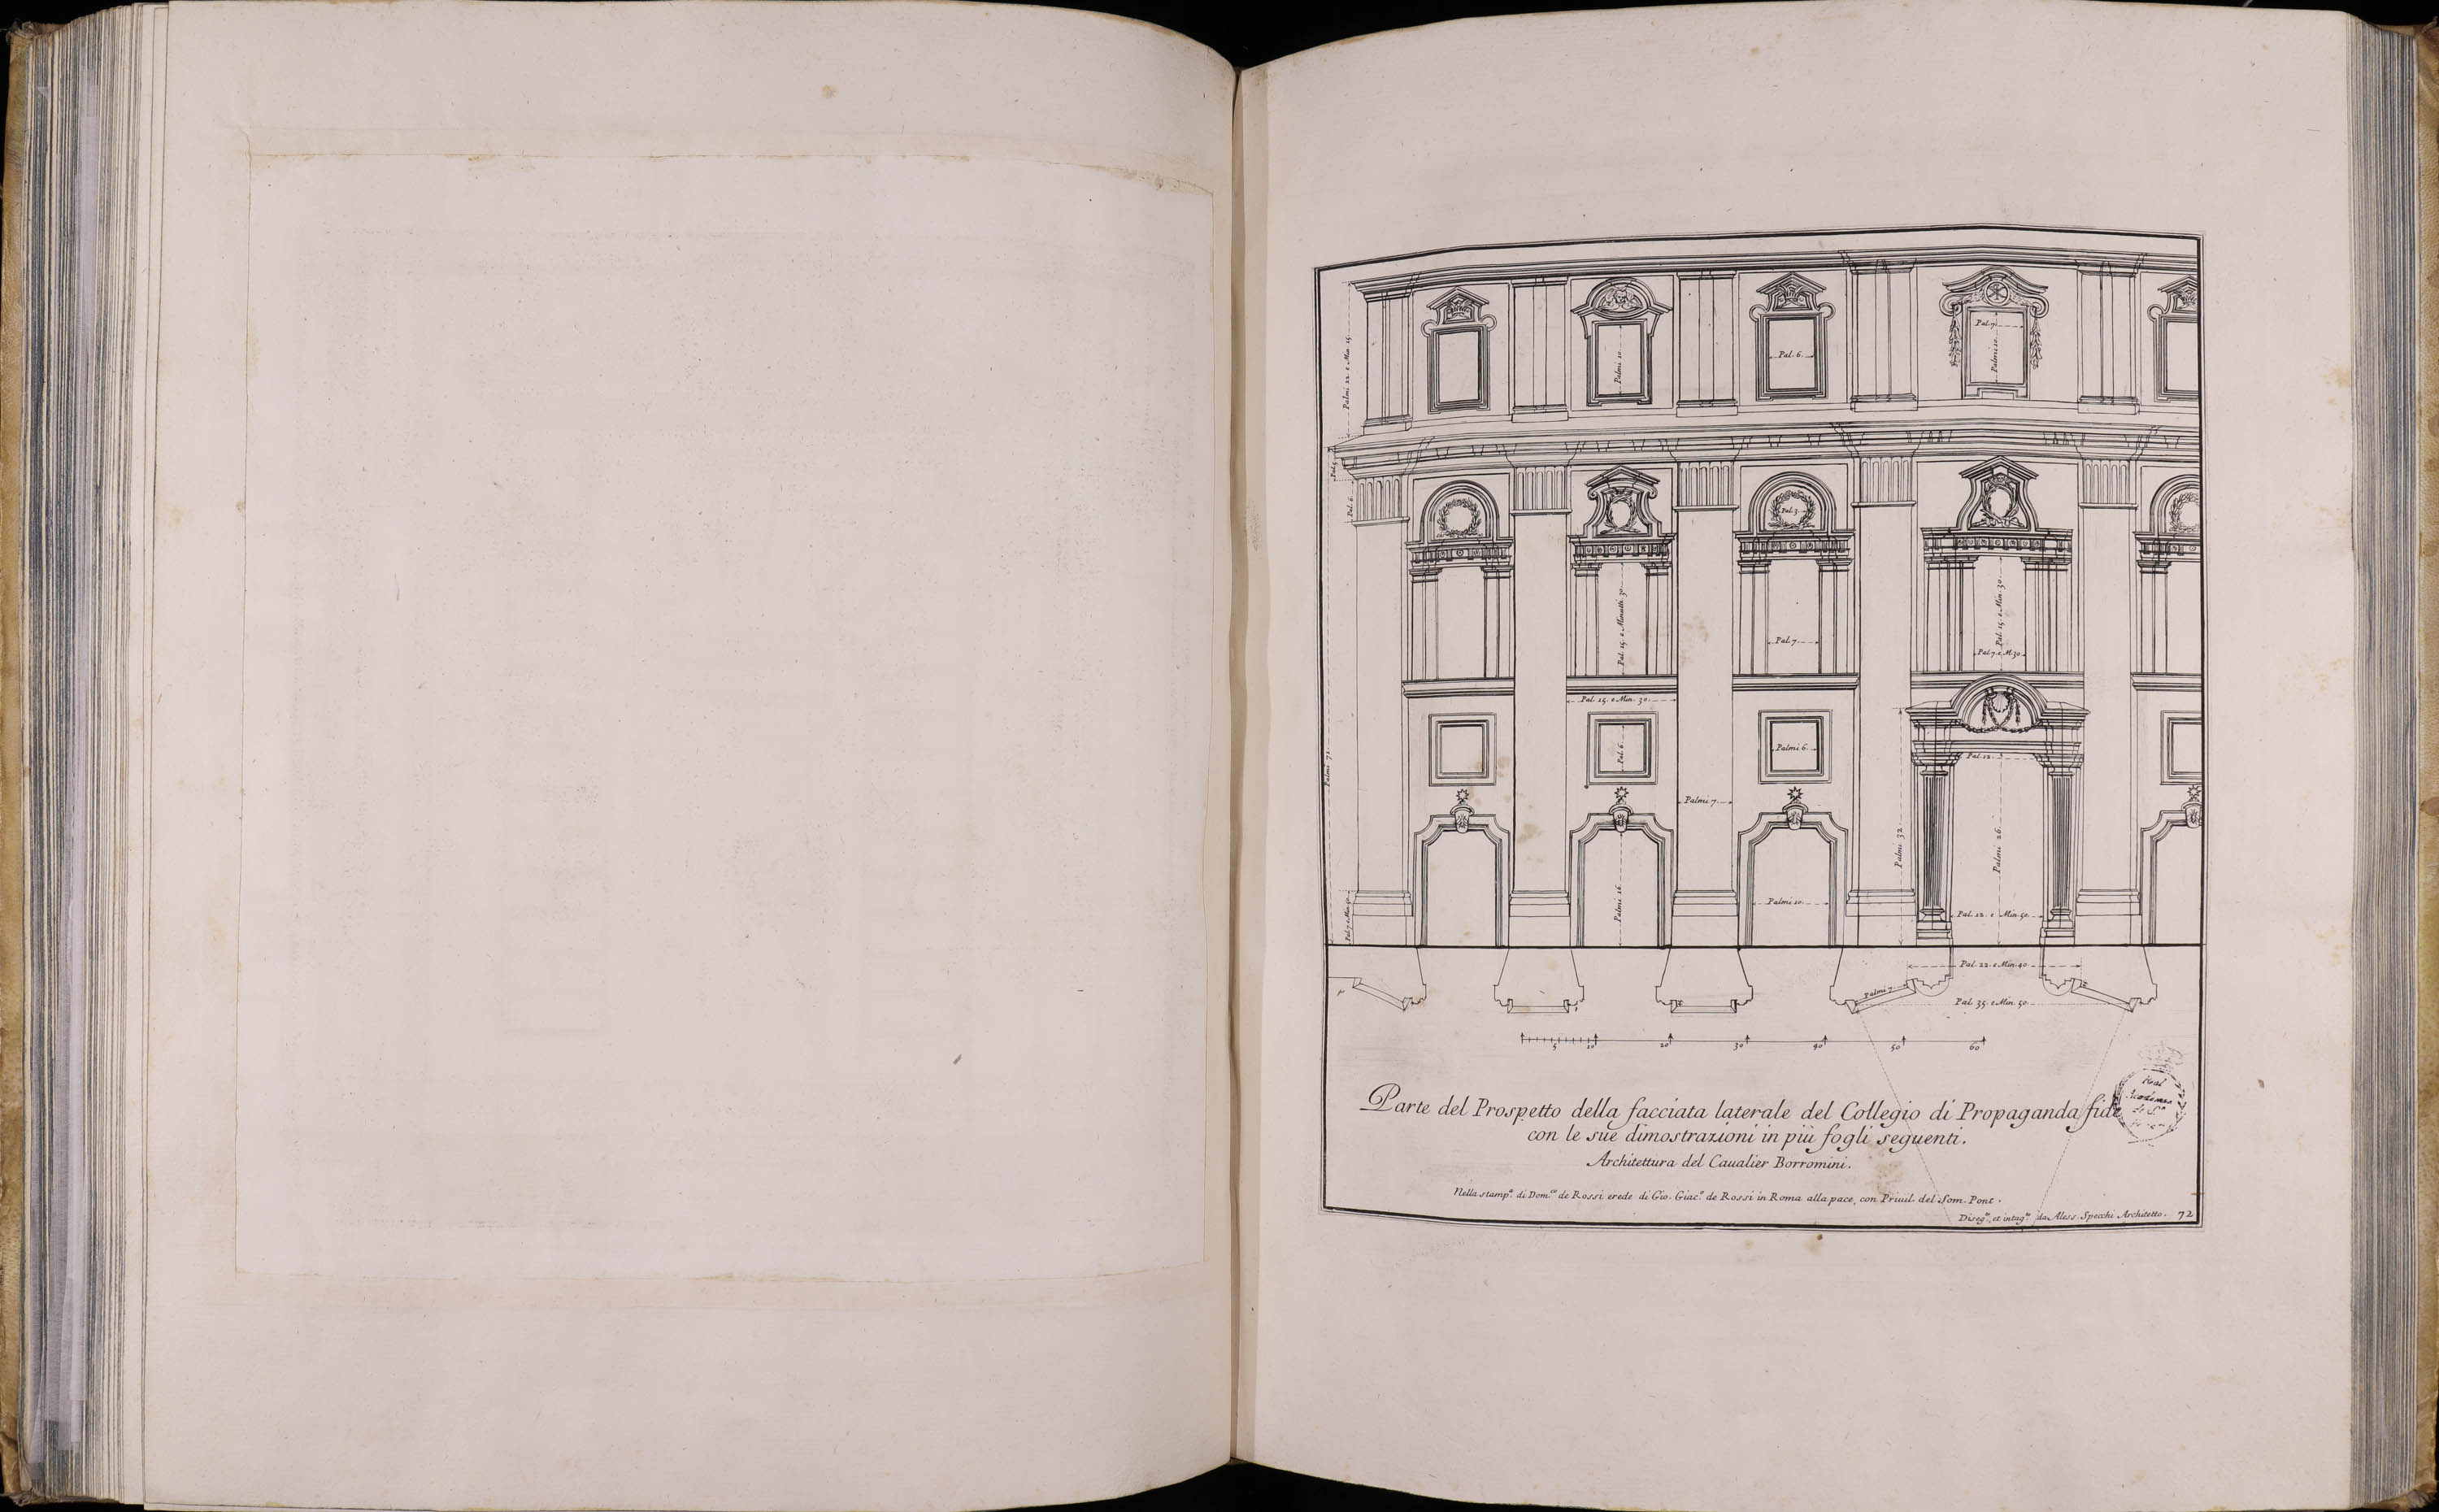 Palmi 22. e Min. 15.
Palmi 10.
Pal. 6.
Pal. 7.
Palmi 10.
Pal. 6.
Pal. 3.
Pal. 15. e Minuti 30.
Pal. 7.
Pal. 15. e Min. 30.
Pal. 7. e M. 30.
Pal. 15. e Min. 30.
Palmi 72.
Pal. 6.
Palmi 6.
Palmi 7.
Pal. 12.
Palmi 32.
Palmi 26.
Palmi 16.
Palmi 10.
Pal. 12. e Min. 50.
Pal. 7. e Min. 50.
Pal. 22. e Min. 40.
Palmi 7.
Pal. 35. e Min. 50.
5 10 20 30 40 50 60
Parte del Prospetto della facciata laterale del Collegio di Propaganda fide
con le sue dimostrazioni in più fogli seguenti.
Architettura del Caualier Borromini.
Nella stamp.ᵃ di Dom.ᶜᵒ de Rossi erede di Gio. Giac.º de Rossi in Roma alla pace, con Priuil. del Som. Pont.
Diseg.ᵗᵒ, et intag.ᵗᵒ da Aless. Specchi Architetto. 72
Real
Academia
de S.ⁿ